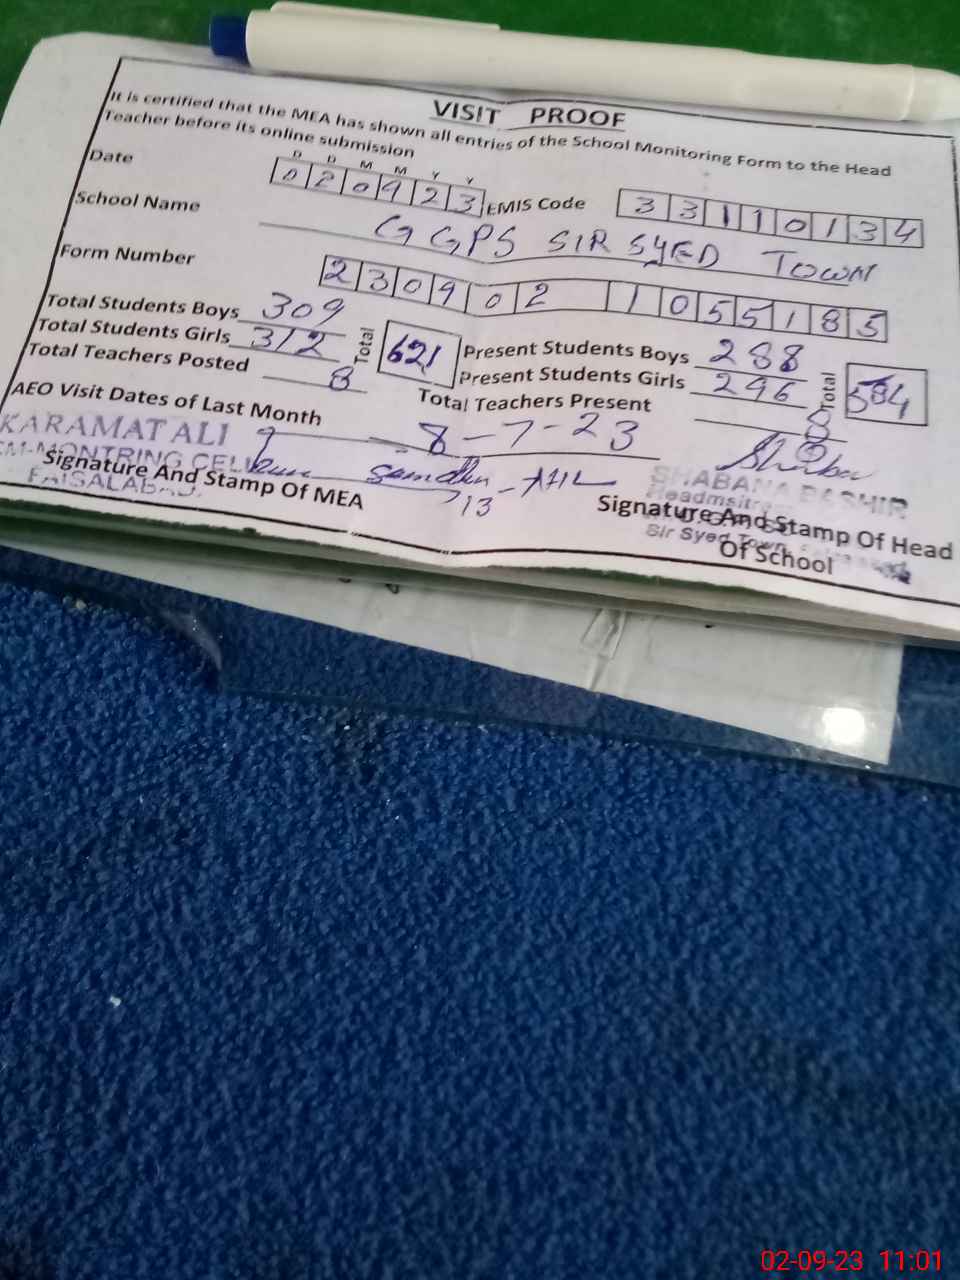 VISIT PROOF
It is certified that the MEA has shown all entries of the School Monitoring Form to the Head
Teacher before its online submission
D D M M Y Y
Date 0 2 0 9 2 3 EMIS Code 3 3 1 1 0 1 3 4
School Name GGPS SIR SYED TOWN
Form Number 2 3 0 9 0 2 1 0 5 5 1 8 5
Total Students Boys 309 Total 621 Present Students Boys 288 Total 584
Total Students Girls 312 Present Students Girls 296
Total Teachers Posted 8 Total Teachers Present 8
AEO Visit Dates of Last Month 8-7-23
KARAMAT ALI
FAISALABAD.
Signature And Stamp Of MEA
SHABANA BASHIR
Sir Syed Town
Signature And Stamp Of Head
Of School
02-09-23 11:01